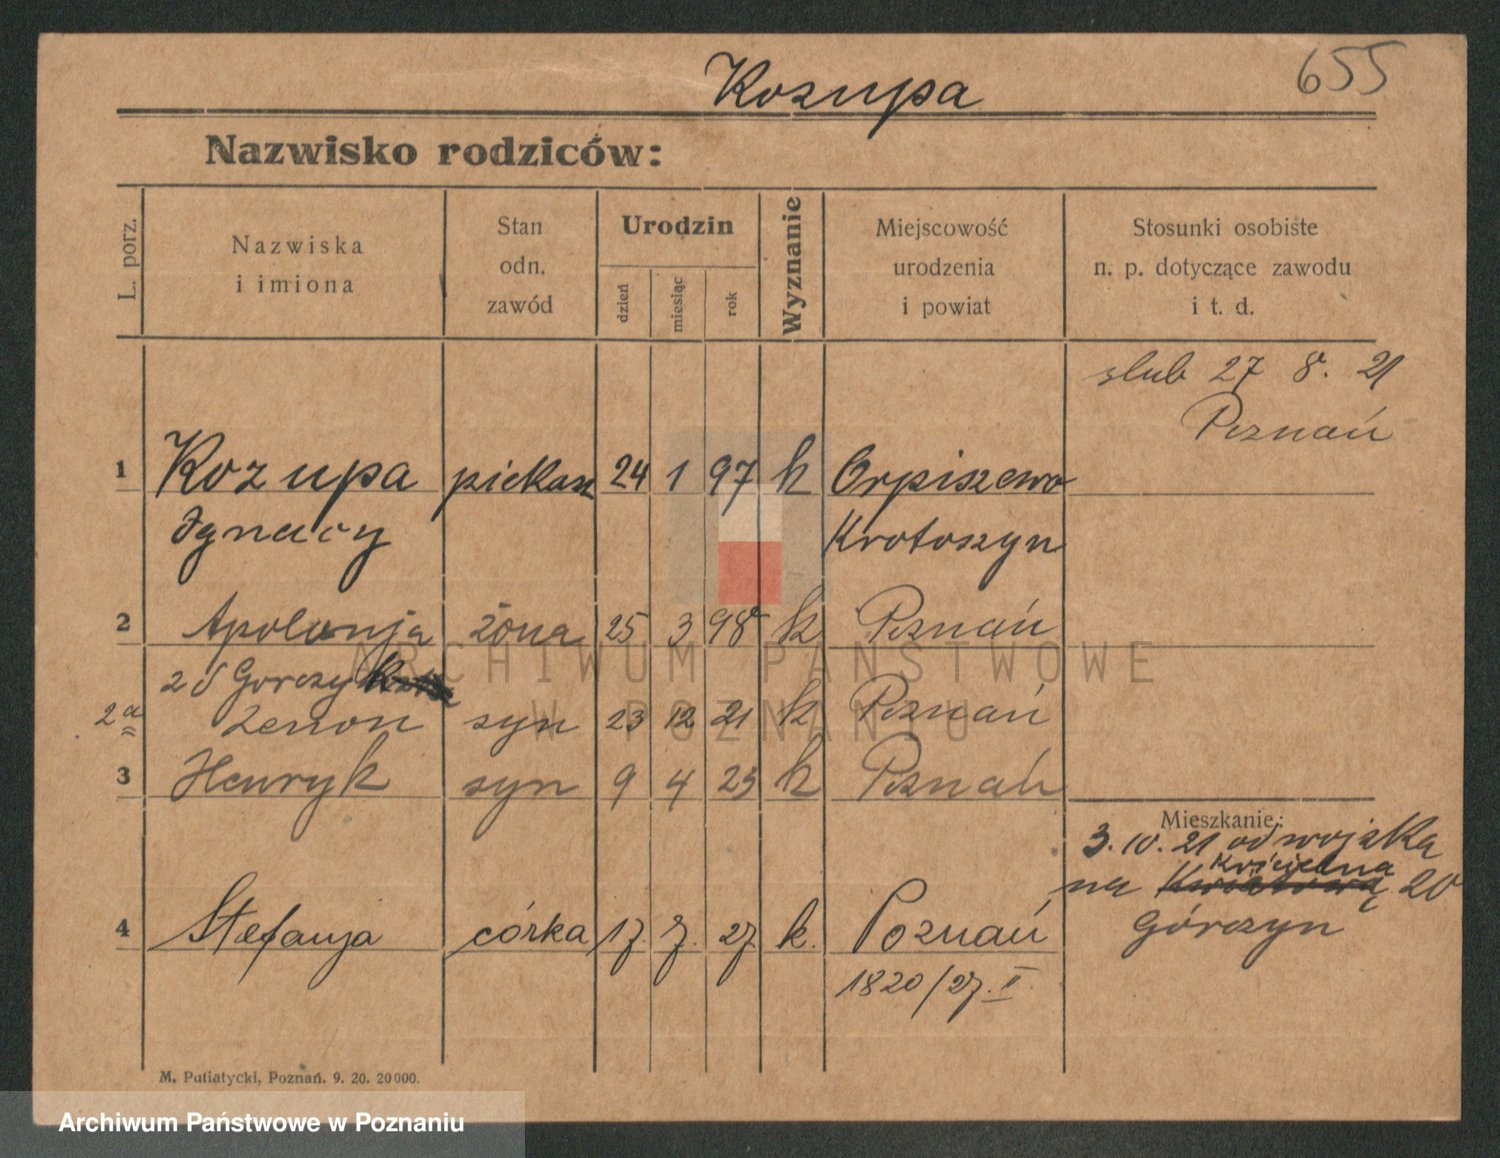 Kozupa
655
Nazwisko rodziców:
L. porz.
Nazwiska
i imiona
Stan
odn.
zawód
Urodzin
dzień
miesiąc
rok
Wyznanie
Miejscowość
urodzenia
i powiat
Stosunki osobiste
n. p. dotyczące zawodu
i t. d.
ślub 27 8. 21
Poznań
1 Kozupa piekarz 24 1 97 k Orpiszewo
Ignacy Krotoszyn
2 Apolonja żona 25 3 98 k Poznań
2 d Gorczyk
2a Zenon syn 23 12 21 k Poznań
3 Henryk syn 9 4 23 k Poznań
Mieszkanie:
3. 10. 21 od wojska
Kościelna
na 20
Górczyn
4 Stefanja córka 17. 7. 27. k. Poznań
1820/27. II
M. Putiatycki, Poznań. 9. 20. 20000.
ARCHIWUM PAŃSTWOWE
W POZNANIU
Archiwum Państwowe w Poznaniu